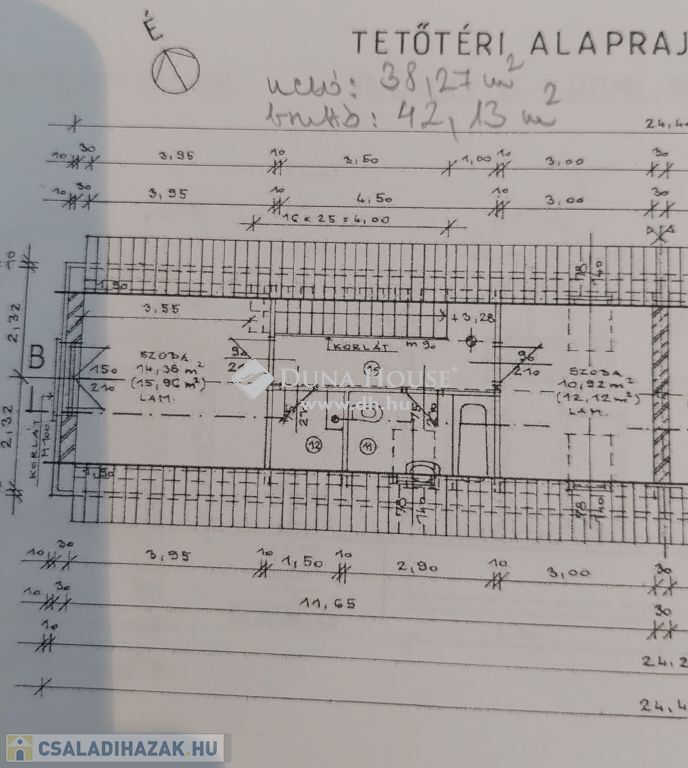 É
TETŐTÉRI ALAPRAJ
nettó: 38,27 m²
bruttó: 42,13 m²
24,4
10 30 3,95 10 3,50 1,00 10 3,00 30
10 30 3,95 10 4,50 10 3,00 30
16 x 25 = 4,00
10
2,32
2,32
B
KORLÁT
M 100
1,90
3,55
150
210
SZOBA
14,36 m²
(15,96 m²)
LAM.
90
KORLÁT m 90
+3,28
90
210
SZOBA
10,92 m²
(12,12 m²)
LAM.
DUNA HOUSE
www.dh.hu
75
210
75
210
12
11
1,90
78
140
78
140
78
140
10 30 3,95 10 1,50 10 2,90 10 3,00 30
10 30 11,65 30
10 24,2
24,4
CSALADIHAZAK.HU